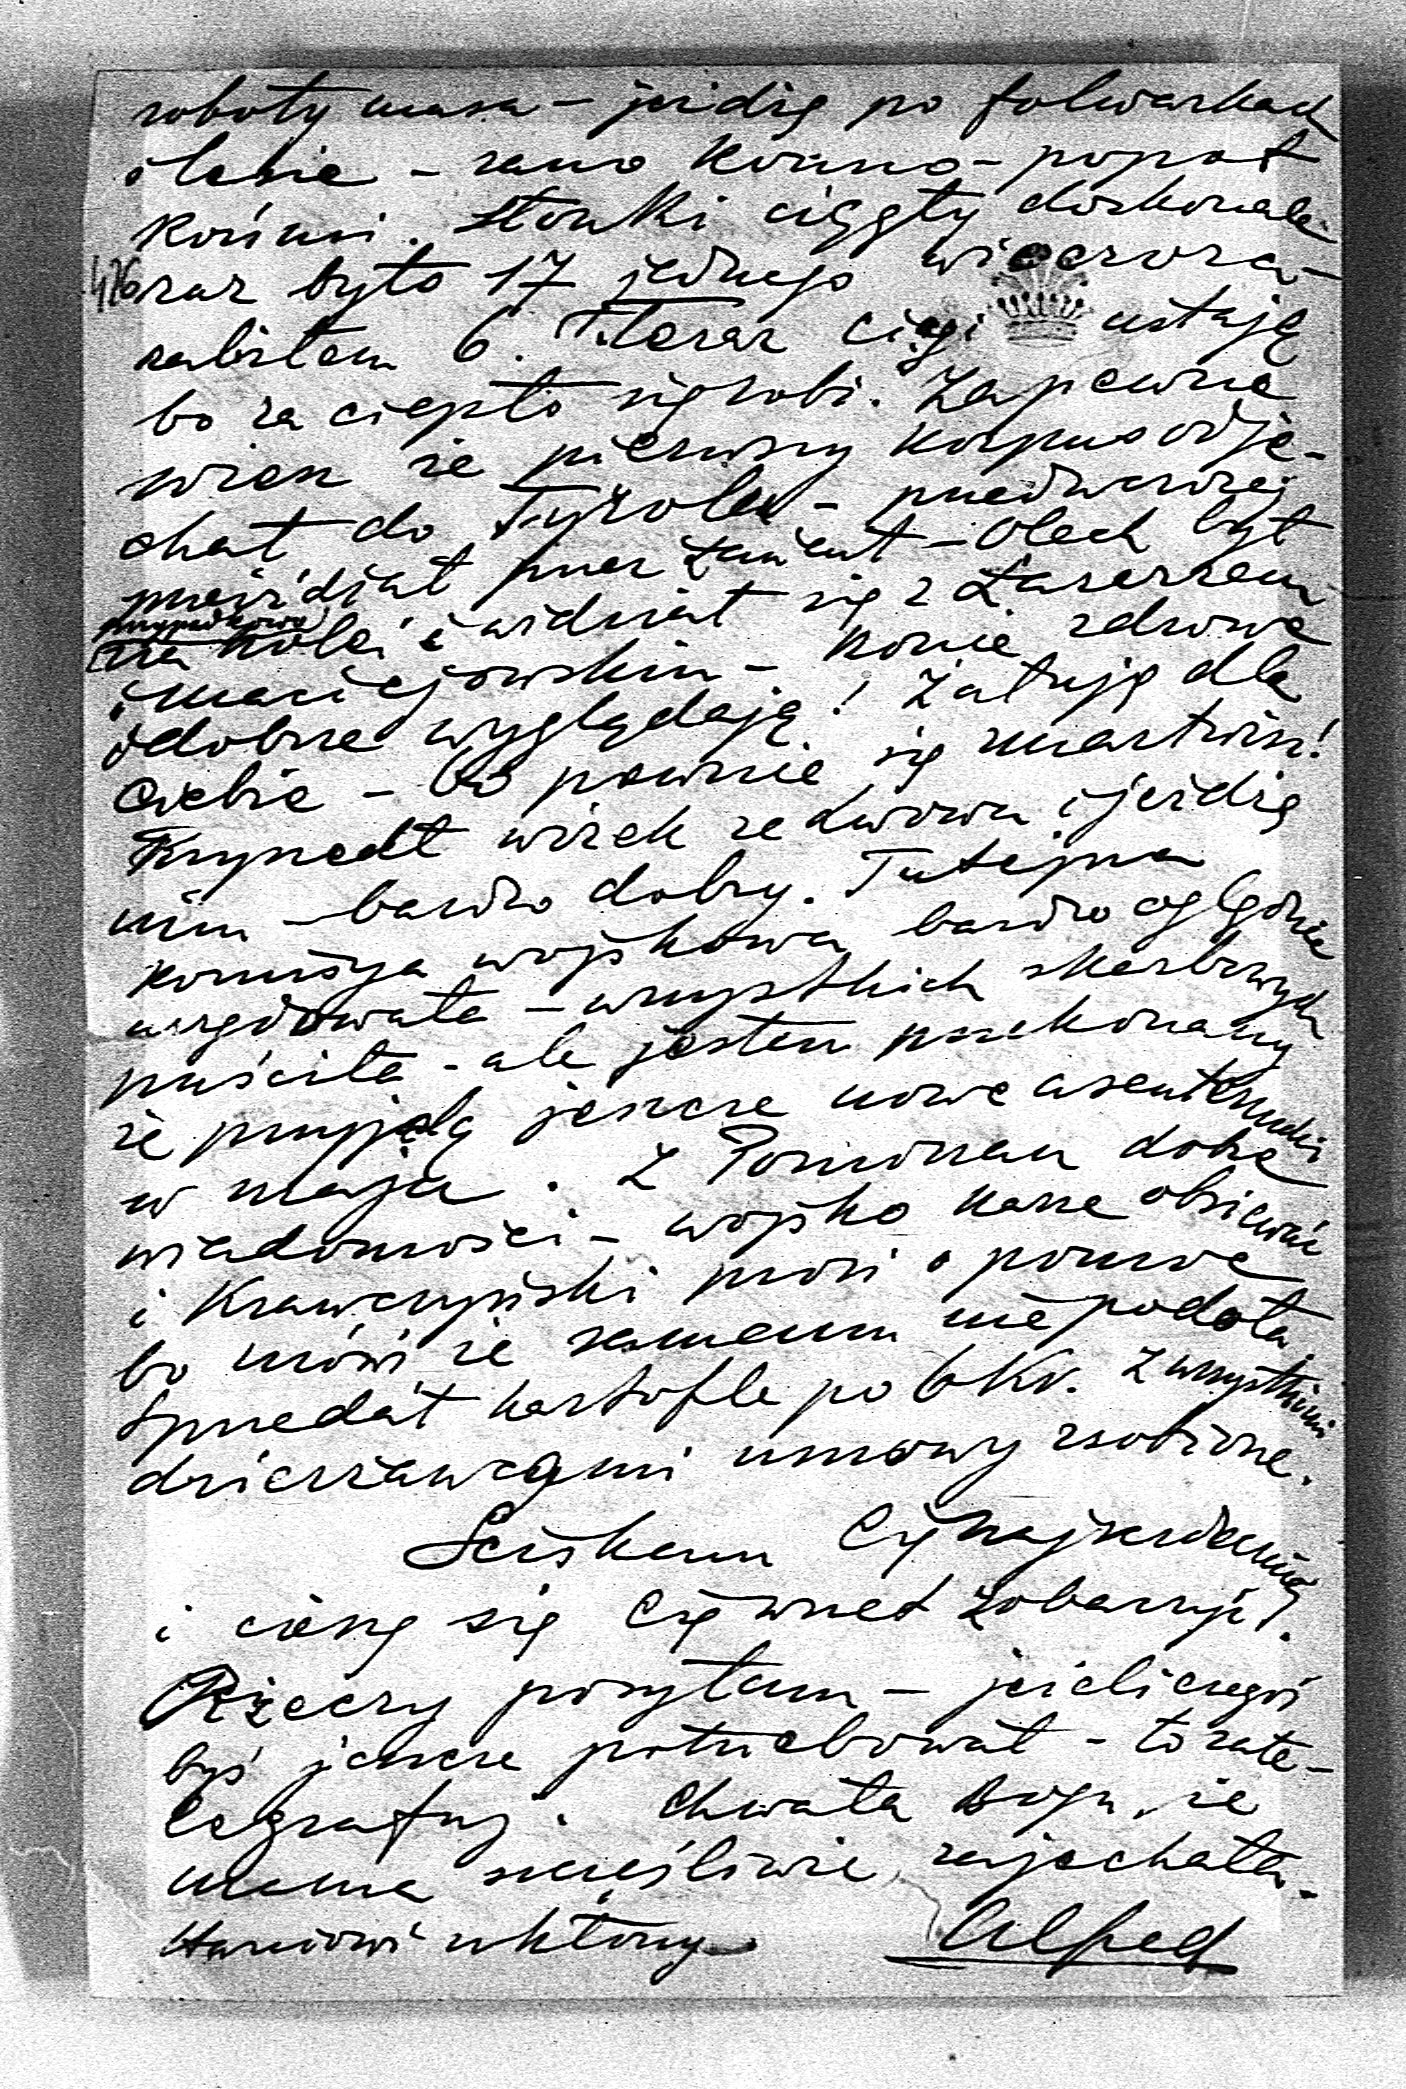 roboty masa – jeżdżę po folwarkach
i lesie – rano konno – popoł
końmi. Słonki ciągły doskonale
476
raz było 17 jednego wieczora –
zabiłem 6. Teraz ciągi ustają
bo za ciepło się robi. Zapewne
wiesz że pierwszy korpus odje-
chał do Tyrolu – przedwczoraj
przejeżdżał przez Łańcut – Olech był
przypadkowo
na kolei i widział się z Łazarzem
i Maciejowskim – konie zdrowe
i dobrze wyglądają! Żałuję dla
Ciebie – bo pewnie się martwisz!
Krzysedt wózek ze Lwowa i jeżdżę
nim – bardzo dobry. Tutejsza
komisya wojskowa bardzo oględnie
urzędowała – wszystkich skarbowych
puściła – ale jestem przekonany
że przyjdą jeszcze nowe asenterunki
w maju. Z Pomorzan dobre
wiadomości – wojsko każe obsiewać
i Krawczyński prosi o pomoc
bo mówi że samemu nie podoła.
Sprzedał kartofle po 6 Kr. Z wszystkimi
dzierżawcami umowy zrobione.
Ściskam Cię najserdeczniej
i cieszę się Cię wnet zobaczyć!
Rzeczy posyłam – jeżeli czegoś
byś jeszcze potrzebował – to zate-
legrafuj. Chwała Bogu, że
mama szczęśliwie zajechała.
ukłony Alfred